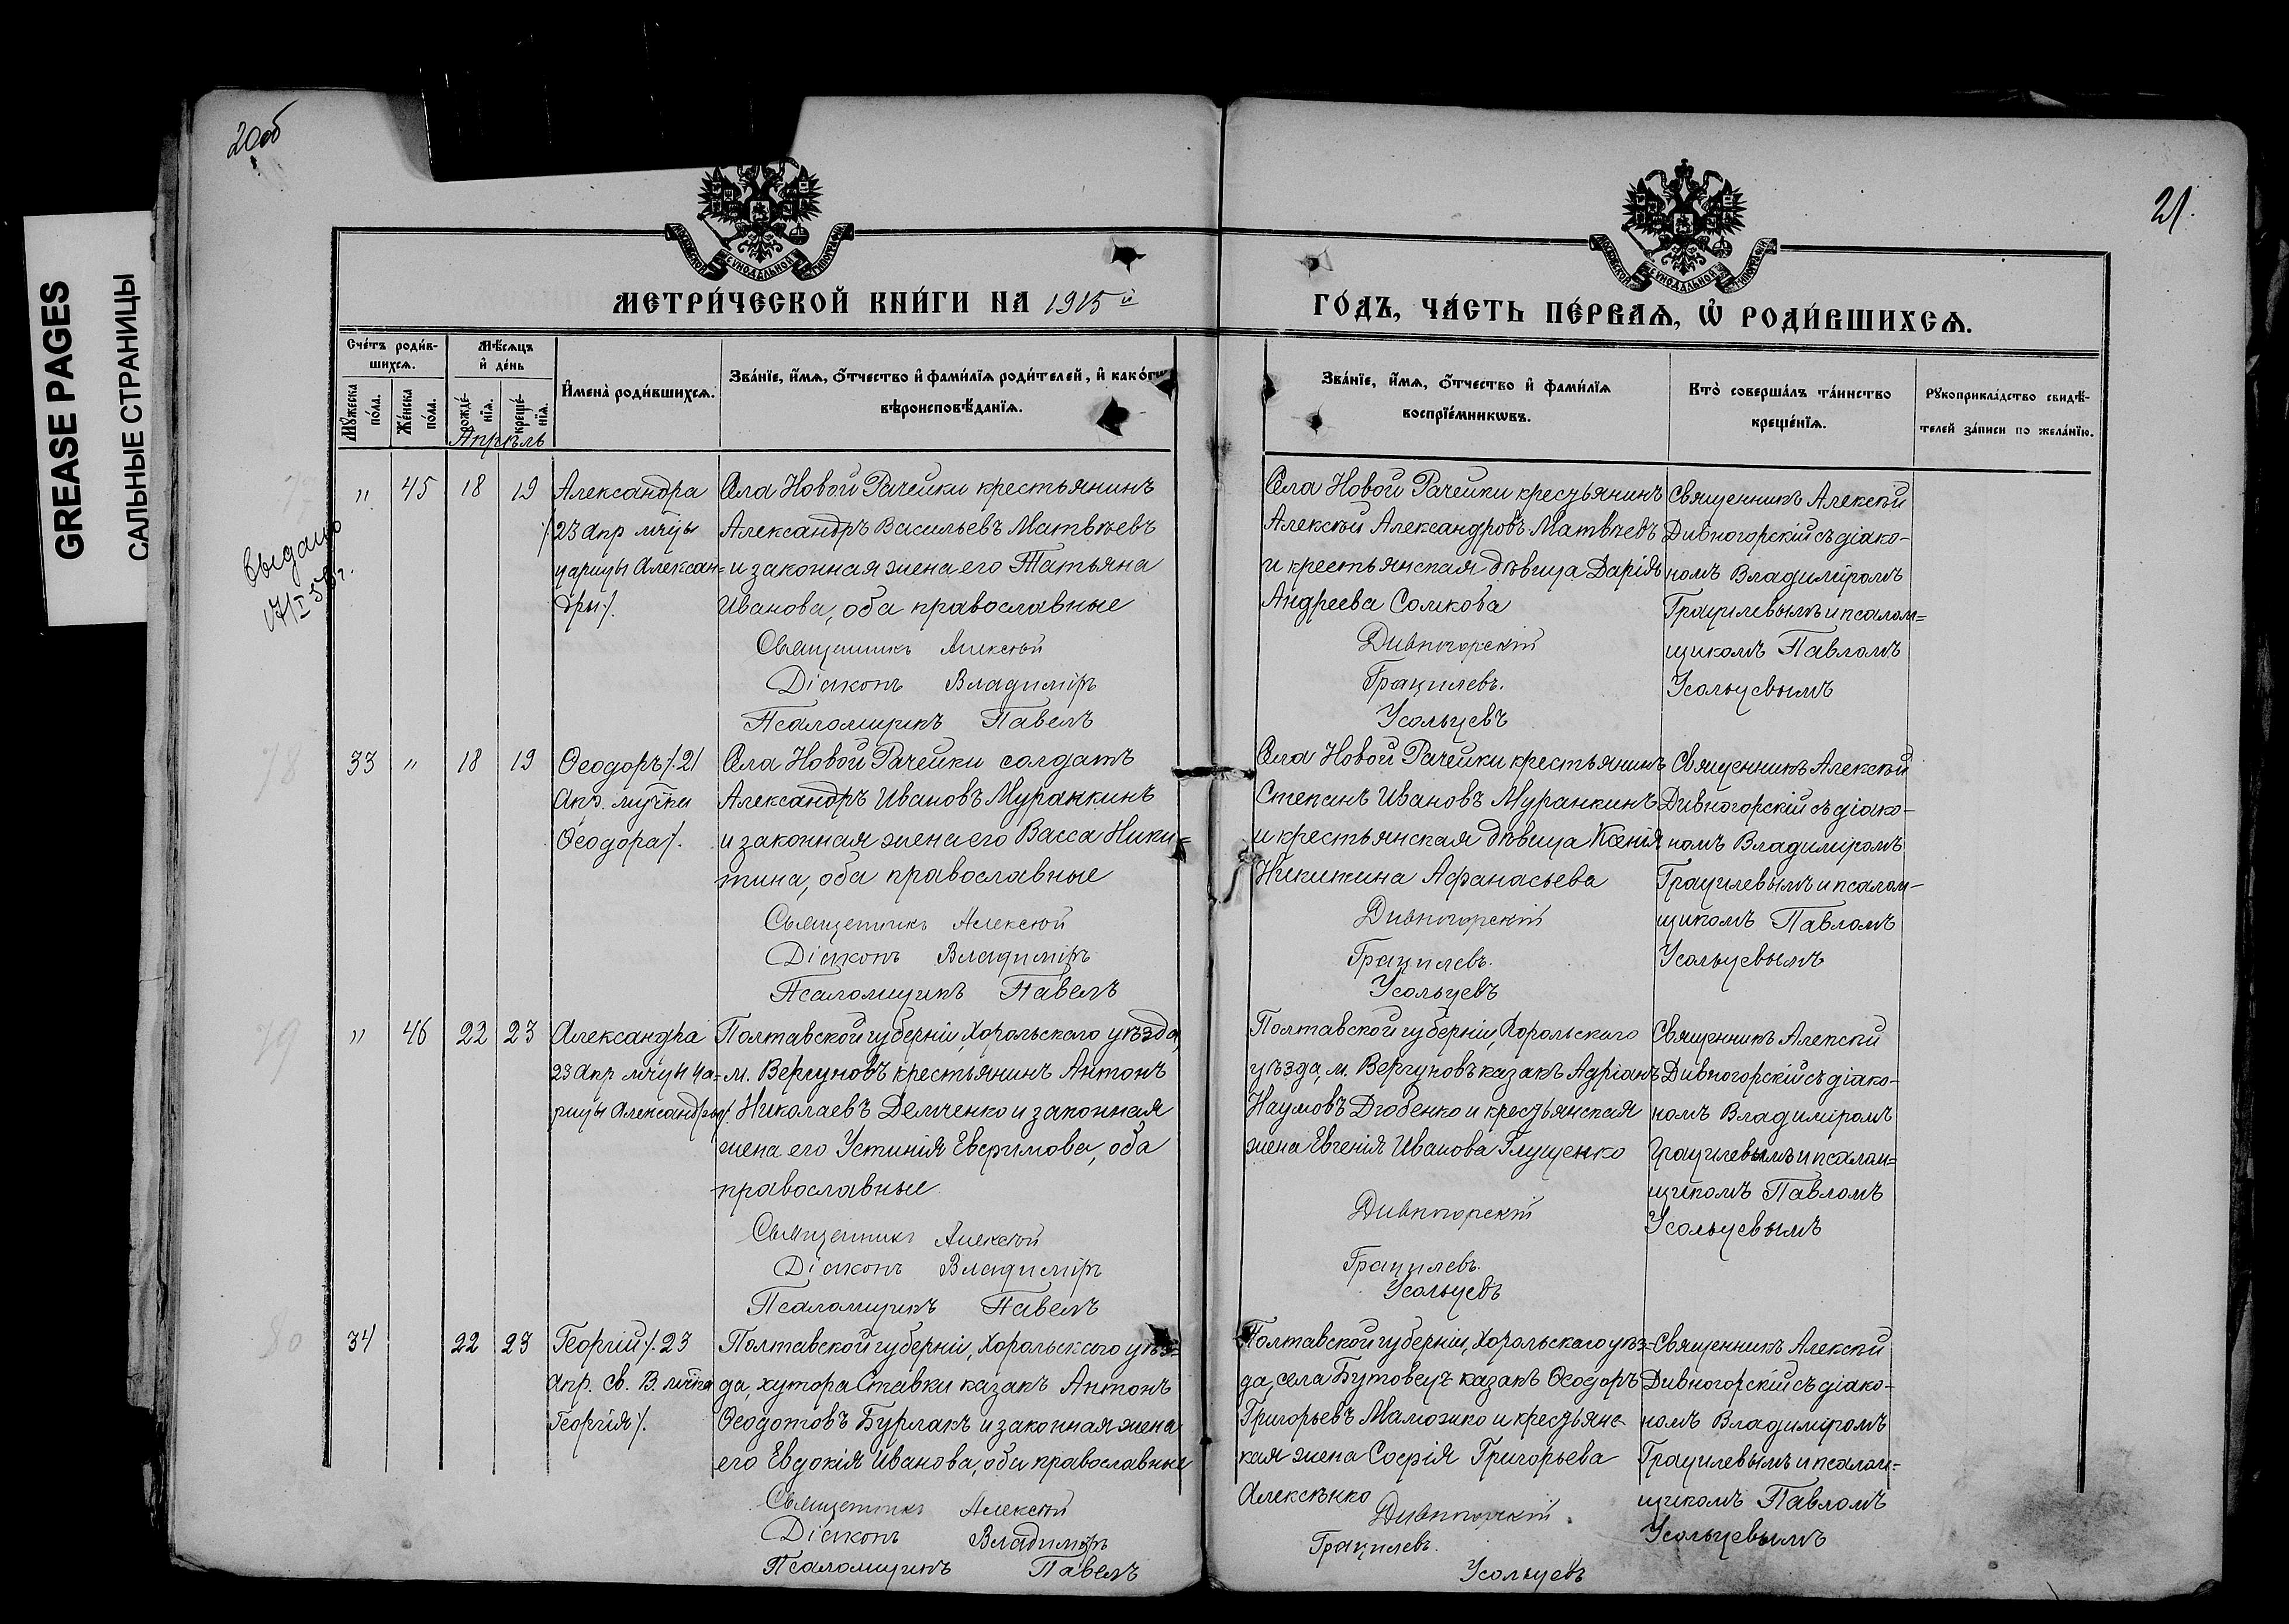 GREASE PAGES
САЛЬНЫЕ СТРАНИЦЫ
20об
21.
МЕТРИ́ЧЕСКОЙ КНИ́ГИ НА 1915й
ГО́ДЪ, ЧА́СТЬ ПЕ́РВАѦ, Ѡ҆ РОДИ́ВШИХСѦ.
Сче́тъ роди́в-
шихсѧ.
Мѣ́сѧцъ
и҆ де́нь
Мꙋ́жеска по́ла.
Же́нска по́ла.
рожде́-нїѧ.
креще́-нїѧ.
И҆мена̀ роди́вшихсѧ.
Зва́нїе, и҆́мѧ, ѻ҆́тчество и҆ фами́лїѧ роди́телей, и҆ како́гѡ
вѣроисповѣ́данїѧ.
Зва́нїе, и҆́мѧ, ѻ҆́тчество и҆ фами́лїѧ
воспрїе́мникѡвъ.
Кто̀ соверша́лъ та́инство
креще́нїѧ.
Рꙋкоприкла́дство свидѣ́-
телей за́писи по жела́нїю.
Апрѣль
выдано
" 45 18 19
Александра
/23 Апр мчцы
царицы Алексан=
дры/.
Села Новой Рачейки крестьянинъ
Александръ Васильевъ Матвѣевъ
и законная жена его Татьяна
Иванова, оба православные
Священникъ Алексѣй
Діаконъ Владиміръ
Псаломщикъ Павелъ
Села Новой Рачейки крестьянинъ
Алексѣй Александровъ Матвѣевъ
и крестьянская дѣвица Дарія
Андреева Сомкова
Дивногорскій
Грацилевъ.
Усольцевъ
Священникъ Алексѣй
Дивногорскій съ діако-
номъ Владиміромъ
Грацилевымъ и псалом=
щикомъ Павломъ
Усольцевымъ
78
33 " 18 19
Ѳеодоръ/.21
Апр. мучка
Ѳеодора/.
Села Новой Рачейки солдатъ
Александръ Ивановъ Муранкинъ
и законная жена его Васса Ники=
тина, оба православные
Священникъ Алексѣй
Діаконъ Владиміръ
Псаломщикъ Павелъ
Села Новой Рачейки крестьянинъ
Степанъ Ивановъ Муранкинъ
и крестьянская дѣвица Ксенія
Никитина Афанасьева
Дивногорскій
Грацилевъ.
Усольцевъ
Священникъ Алексѣй
Дивногорскій съ діако-
номъ Владиміромъ
Грацилевымъ и псалом-
щикомъ Павломъ
Усольцевымъ
79
" 46 22 23
Александра
23 Апр мчцы ца=
рицы Александры/.
Полтавской губерніи, Хорольскаго уѣзда,
м. Вергуновъ крестьянинъ Антонъ
Николаевъ Демченко и законная
жена его Устинія Евфимова, оба
православные
Священникъ Алексѣй
Діаконъ Владиміръ
Псаломщикъ Павелъ
Полтавской губерніи, Хорольскаго
уѣзда, м. Вергуновъ казакъ Адріанъ
Наумовъ Дзюбенко и крестьянская
жена Евгенія Иванова Глущенко
Дивногорскій
Грацилевъ.
Усольцевъ
Священникъ Алексѣй
Дивногорскій съ діако-
номъ Владиміромъ
Грацилевымъ и псалом=
щикомъ Павломъ
Усольцевымъ
80
34 22 23
Георгій/.23
Апр. св. В. мчка
Георгія/.
Полтавской губерніи, Хорольскаго уѣз=
да, хутора Ставки казакъ Антонъ
Ѳеодотовъ Бурлакъ и законная жена
его Евдокія Иванова, оба православные
Священникъ Алексѣй
Діаконъ Владиміръ
Псаломщикъ Павелъ
Полтавской губерніи, Хорольскаго уѣз=
да, села Бутовецъ казакъ Ѳеодоръ
Григорьевъ и крестьянс-
кая жена Софія Григорьева
Алексѣнко
Дивногорскій.
Грацилевъ.
Усольцевъ
Священникъ Алексѣй
Дивногорскій съ діако-
номъ Владиміромъ
Грацилевымъ и псалом=
щикомъ Павломъ
Усольцевымъ